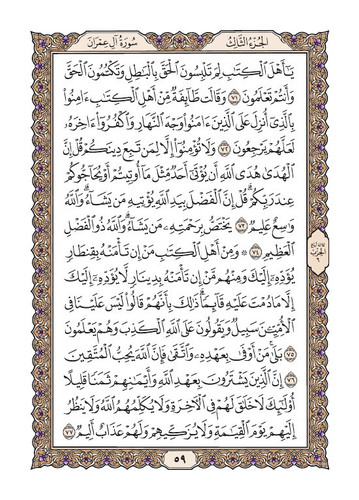 الجُزْءُ الثَّالِثُ
سُورَةُ آلِ عِمْرَانَ
يَٰٓأَهْلَ ٱلْكِتَٰبِ لِمَ تَلْبِسُونَ ٱلْحَقَّ بِٱلْبَٰطِلِ وَتَكْتُمُونَ ٱلْحَقَّ
وَأَنتُمْ تَعْلَمُونَ ٧١ وَقَالَت طَّآئِفَةٌ مِّنْ أَهْلِ ٱلْكِتَٰبِ ءَامِنُوا۟
بِٱلَّذِىٓ أُنزِلَ عَلَى ٱلَّذِينَ ءَامَنُوا۟ وَجْهَ ٱلنَّهَارِ وَٱكْفُرُوٓا۟ ءَاخِرَهُۥ
لَعَلَّهُمْ يَرْجِعُونَ ٧٢ وَلَا تُؤْمِنُوٓا۟ إِلَّا لِمَن تَبِعَ دِينَكُمْ قُلْ إِنَّ
ٱلْهُدَىٰ هُدَى ٱللَّهِ أَن يُؤْتَىٰٓ أَحَدٌ مِّثْلَ مَآ أُوتِيتُمْ أَوْ يُحَآجُّوكُمْ
عِندَ رَبِّكُمْ ۗ قُلْ إِنَّ ٱلْفَضْلَ بِيَدِ ٱللَّهِ يُؤْتِيهِ مَن يَشَآءُ ۗ وَٱللَّهُ
وَٰسِعٌ عَلِيمٌ ٧٣ يَخْتَصُّ بِرَحْمَتِهِۦ مَن يَشَآءُ ۗ وَٱللَّهُ ذُو ٱلْفَضْلِ
ٱلْعَظِيمِ ٧٤ ۞ وَمِنْ أَهْلِ ٱلْكِتَٰبِ مَنْ إِن تَأْمَنْهُ بِقِنطَارٍ
يُؤَدِّهِۦٓ إِلَيْكَ وَمِنْهُم مَّنْ إِن تَأْمَنْهُ بِدِينَارٍ لَّا يُؤَدِّهِۦٓ إِلَيْكَ
إِلَّا مَا دُمْتَ عَلَيْهِ قَآئِمًا ۗ ذَٰلِكَ بِأَنَّهُمْ قَالُوا۟ لَيْسَ عَلَيْنَا فِى
ٱلْأُمِّيِّـۧنَ سَبِيلٌ وَيَقُولُونَ عَلَى ٱللَّهِ ٱلْكَذِبَ وَهُمْ يَعْلَمُونَ
٧٥ بَلَىٰ مَنْ أَوْفَىٰ بِعَهْدِهِۦ وَٱتَّقَىٰ فَإِنَّ ٱللَّهَ يُحِبُّ ٱلْمُتَّقِينَ
٧٦ إِنَّ ٱلَّذِينَ يَشْتَرُونَ بِعَهْدِ ٱللَّهِ وَأَيْمَٰنِهِمْ ثَمَنًا قَلِيلًا
أُو۟لَٰٓئِكَ لَا خَلَٰقَ لَهُمْ فِى ٱلْـَٔاخِرَةِ وَلَا يُكَلِّمُهُمُ ٱللَّهُ وَلَا يَنظُرُ
إِلَيْهِمْ يَوْمَ ٱلْقِيَٰمَةِ وَلَا يُزَكِّيهِمْ وَلَهُمْ عَذَابٌ أَلِيمٌ ٧٧
الحِزْب
٦
٥٩